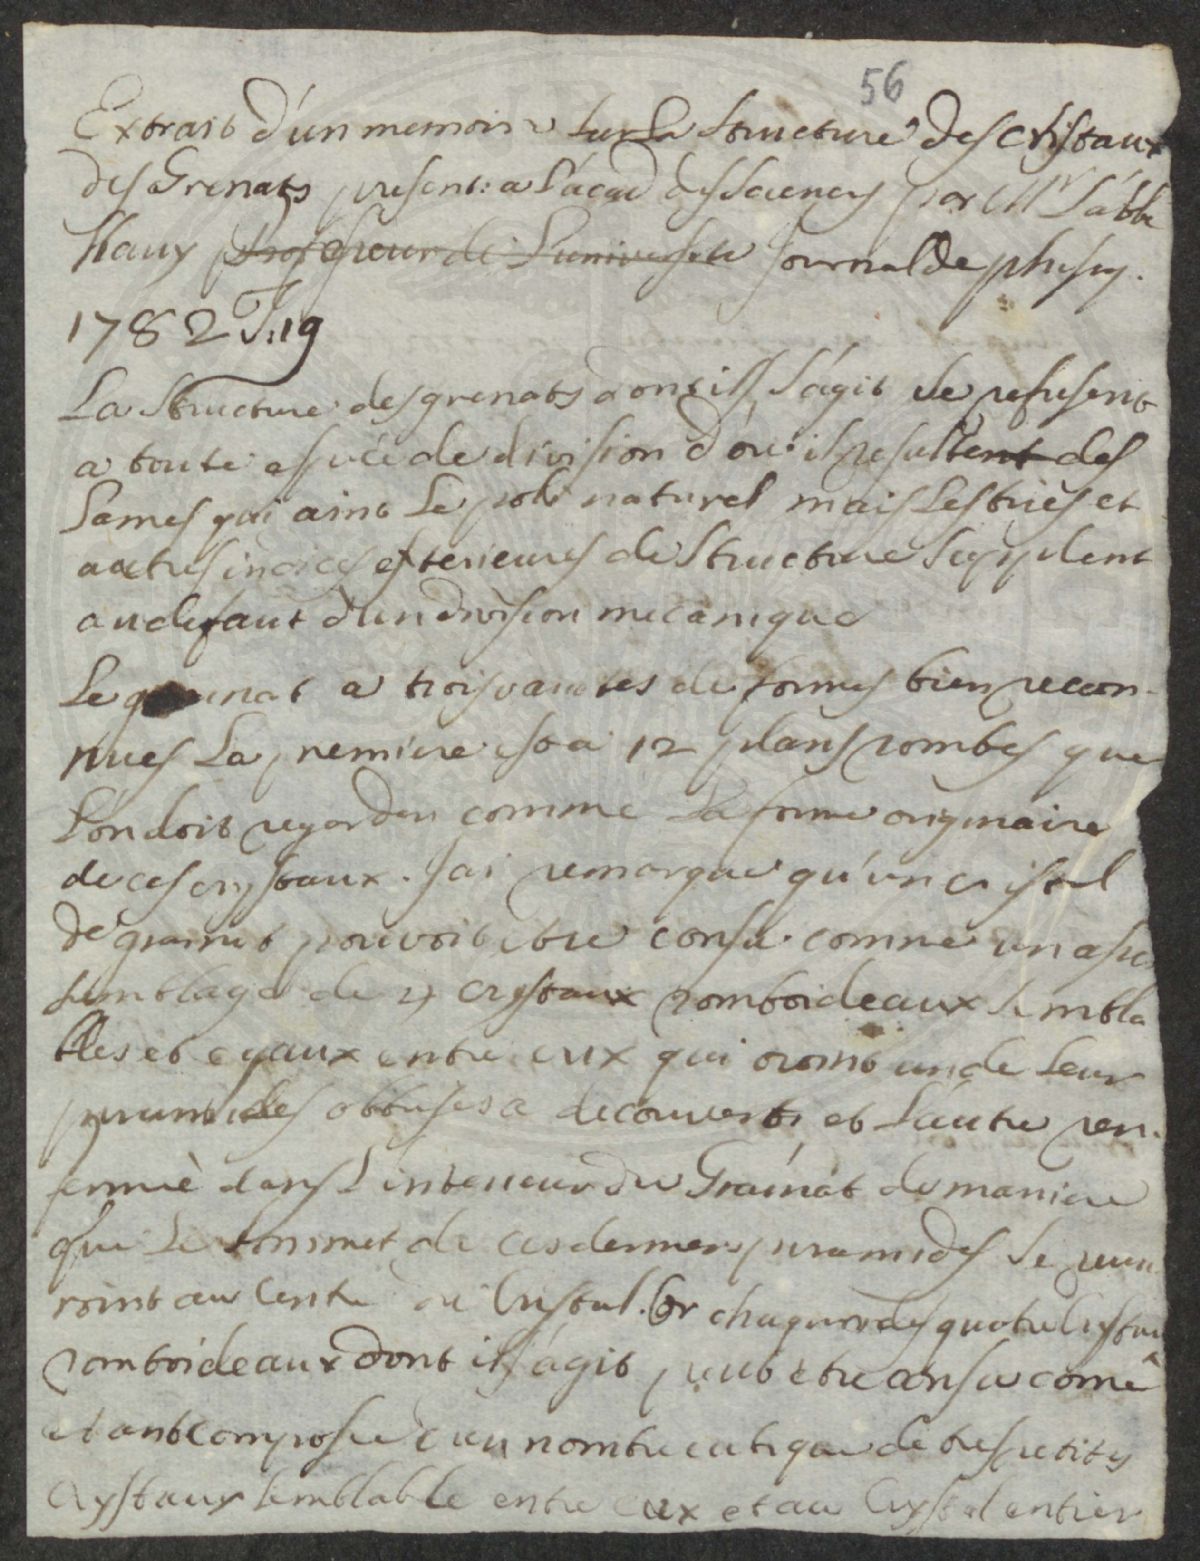 56
Extrait d'un memoire sur la structure des cristaux
des Grenats present: a l'acad des Sciences par Mr l'abbé
Hauy professeur de l'université Journal de phisiq.
1782 T: 19
La structure des grenats dont ill s'agit se refusent
a toute espéce de division d'ou il resultent des
lames qui aint le poli naturel mais les stries et
autres indices exterieures de structure suppleent
au defaut d'un division mecanique
Le grenat a trois variétés de formes bien recon-
nues La premiere est a 12 plans rombes que
l'on doit regarder comme la forme originaire
de ces crystaux. J'ai remarque qu'un cristal
de grainat pouvoit etre consu comme un asse
semblage de 4 crystaux romboideaux sembla
bles et egaux entre eux qui oroint un de leur
piramides obtuses a decouvert et l'autre ren-
fermiè dans l'interieur du Grainat de maniere
que le sommet de ces dernieres piramides se reuni
roint au centre du Cristal. Or chaqun des quatre Crystau
romboideaux dont il s'agit peut etre consu comê
etant composée d'un nombre cubique de tres petits
Crystaux semblable entre eux et au Crystal entier